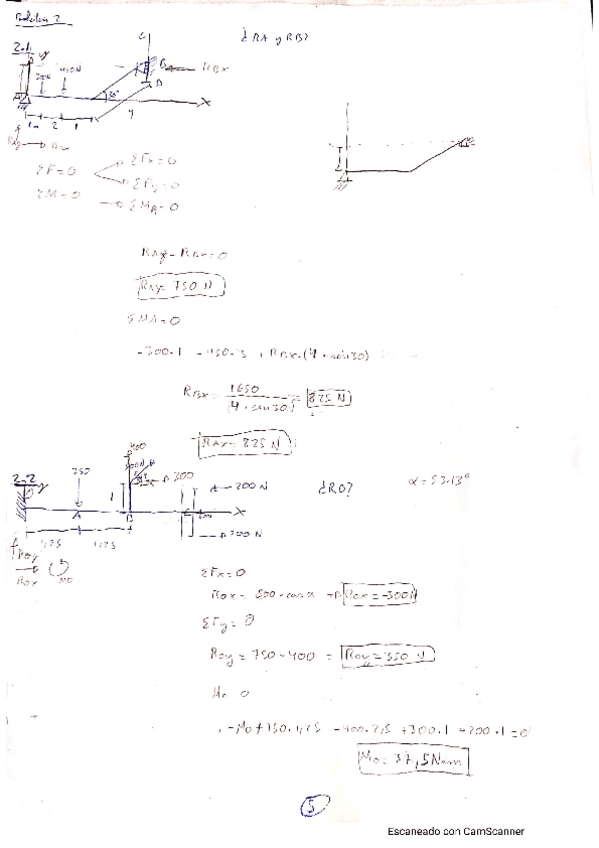 Boletín 2
¿RA y RB?
2.1
y
300N 450N
B
RBx
30°
A
x
1m 2 1
4
RAy RAx
ΣF=0
ΣFx=0
ΣFy=0
ΣM=0 → ΣMA=0
RAx - RBx = 0
RAy = 750 N
ΣMA=0
-300·1 -450·3 + RBx·(4·sin30)
RBx = 1650 / (4·sin30) = 825 N
RAx = 825 N
2.2
y
400
300
750
A
B
1
200 N
200 N
x
¿R0?
α = 53.13°
1,25 1,25
Roy
Rox Mo
ΣFx=0
Rox = 500·cosα → Rox = -300N
ΣFy = 0
Roy = 750 - 400 = Roy = 350 N
Mo 0
-Mo + 750·1,25 -400·2,5 +300·1 -200·1 = 0
Mo = 37,5 Nm
5
Escaneado con CamScanner